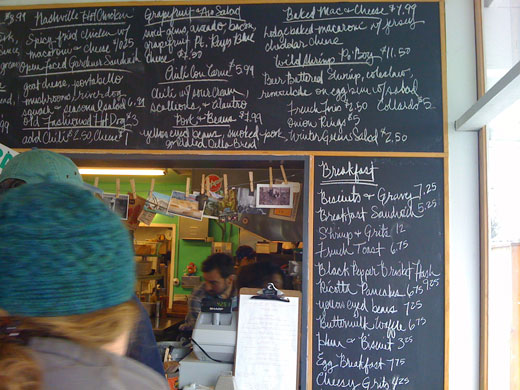 $3.99
Nashville Hot Chicken
Spicy fried chicken w/
macaroni & cheese 9.25
Open-faced Garden Sandwich
goat cheese, portobello
mushrooms,
squash & seasonal salad 6.99
Old Fashioned Hot Dog $3
add Chili $2.50, Cheese
Grapefruit & Avo Salad
avocado, bacon
grapefruit
cheese $7.50
Chili Con Carne $5.99
Chili w/ sour cream,
scallions, & cilantro
Pork & Beans $7.99
yelloweyed beans, smoked pork,
grilled Bread
Baked Mac & Cheese $7.99
ledge baked macaroni w/ jersey
cheddar cheese
Wild Shrimp Po' Boy $11.50
Beer Battered Shrimp, coleslaw,
remoulade on egg bun w/ salad
French Fries $2.50 Collards $5
Onion Rings $5
Winter Green Salad $2.50
Breakfast
Biscuits & Gravy 7.25
Breakfast Sandwich 5.25
Shrimp & Grits 12
French Toast 6.75
Black Pepper Brisket Hash
9.25
Ricotta Pancakes 6.75
yelloweyed beans 7.25
Buttermilk Waffle 6.75
Ham & Biscuit 3.25
Egg Breakfast 7.75
Cheesy Grits 4.25
SHARP